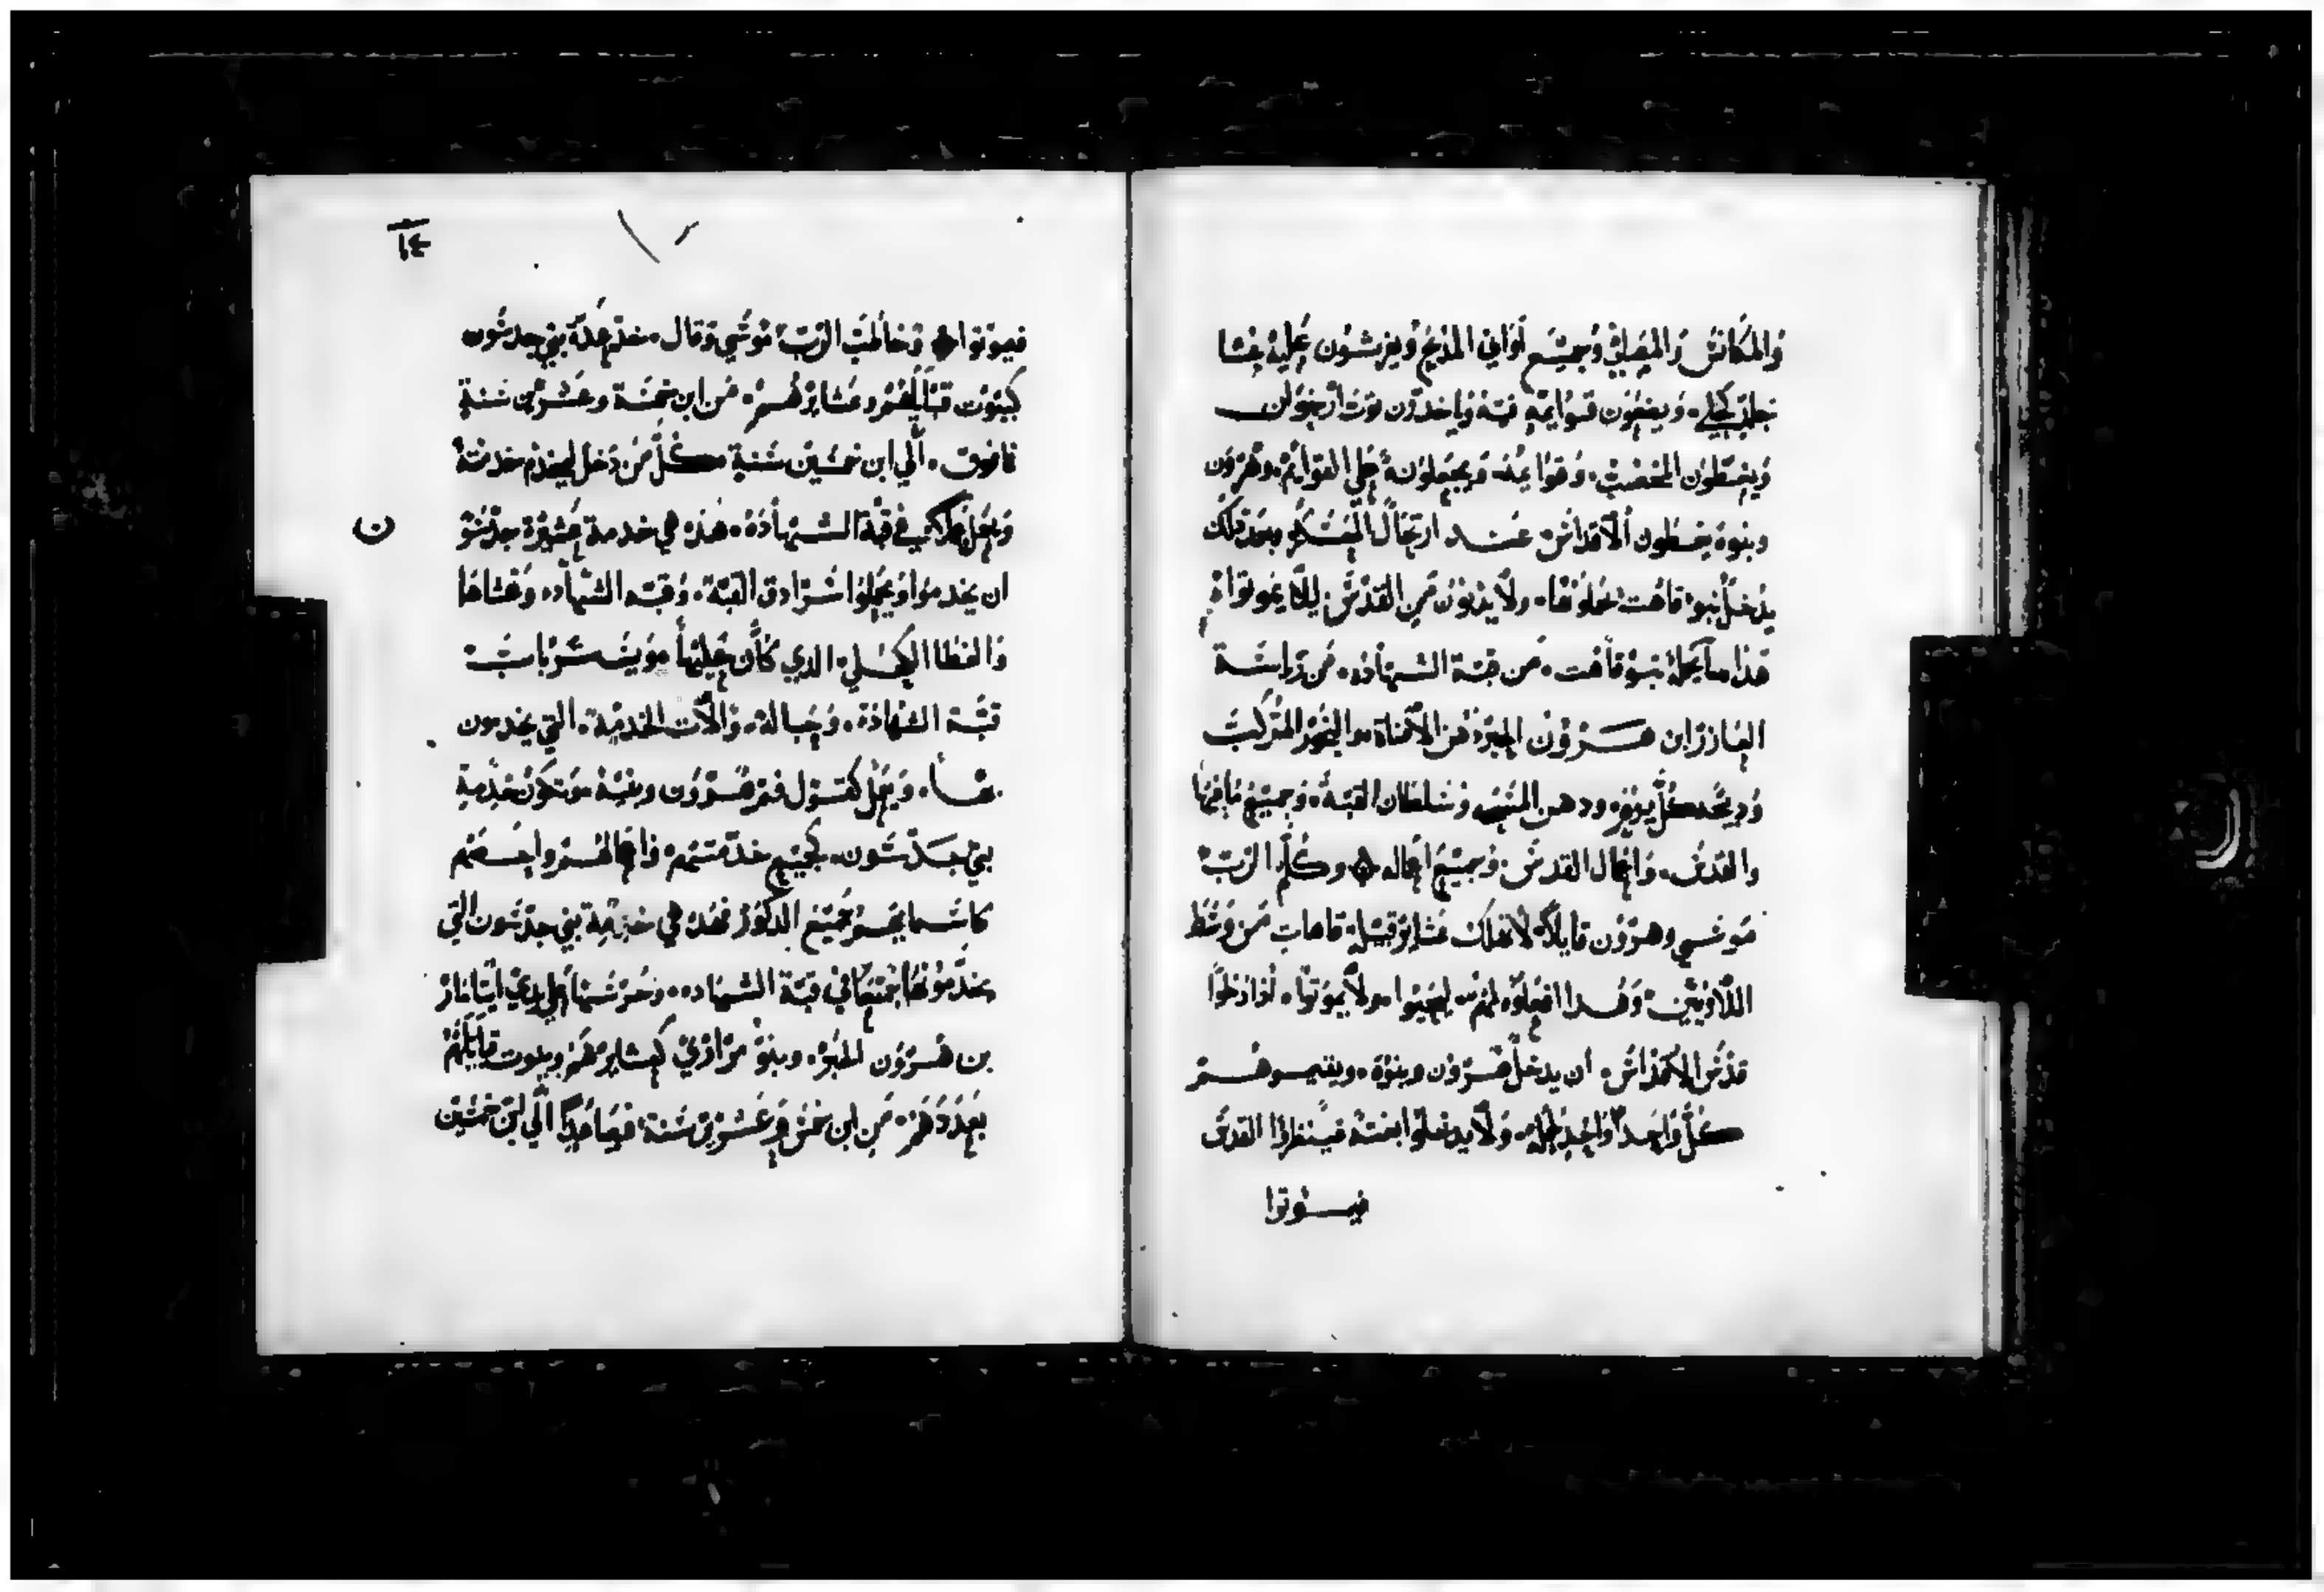 والمكانس والمصافي وجميع اواني المذبح ويفرشون عليه غشا
جلد كحلي. ويضعون قوايمه فيه وياخدون توت ارجوان
ويغطون المخضب. وقوايمه ويجعلونه علي القوايم. وهرون
وبنوه يغطون الاقداس عند ارتحال العسكر وبعد ذلك
يدخل بنوا قاهت لحملونها. ولا يدنون من القدس ليلا يموتوا
هذا ما يحمله بنو قاهت. من قبة الشهاده. من رياسة
العازر ابن هرون الحبر دهن المناة والبخور المركب
ودبيحة كل يوم. ودهن المسح وسلطان القبة وجميع ما فيها
والقدس. واعمال القدس. وجميع اعماله وكلم الرب
موسي وهرون قايلا لا تهلك عشاير قبيلة قاهات من وسط
اللاويين وهدا افعلوه لهم ليحيوا. ولا يموتوا. اذا دخلوا
قدس الاقداس. ان يدخل هرون وبنوه. ويقيموهم
كل واحد واحد لحمله. ولا يدخلوا بغتة فينظروا القدس
فيموتوا
١٤
فيموتوا وخاطب الرب موسي وقال. خد عدة بني جدشون
كبيوت قبايلهم وعشايرهم. من ابن خمسة وعشرين سنة
فافوق. الي ابن خمسين سنة كل من دخل ليخدم خدمته
ويعمل في قبة الشهادة. هذه هي خدمة عشيرة جدشو
ن
ان يخدموا ويحملوا سرادق القبة. وقبة الشهاده وغشاها
والغطا الكحلي الدي كان عليها من
قبة الشهادة. وحباله. والات الخدمة. التي يخدمون
بها. ويعمل كقول فم هرون وبنيه وتكون خدمة
بني جدشون. كجميع خدمتهم واعمالهم واحصهم
كاسمايهم جميع الدكور فهده هي خدمة بني جدشون التي
يخدمونها في قبة الشهاده. وحرسها علي يدي ايتامار
بن هرون الحبر. وبنو مراري كعشايرهم وبيوت قبايلهم
بعددهم من ابن خمس وعشرين سنة فصاعدا الي ابن خمسين